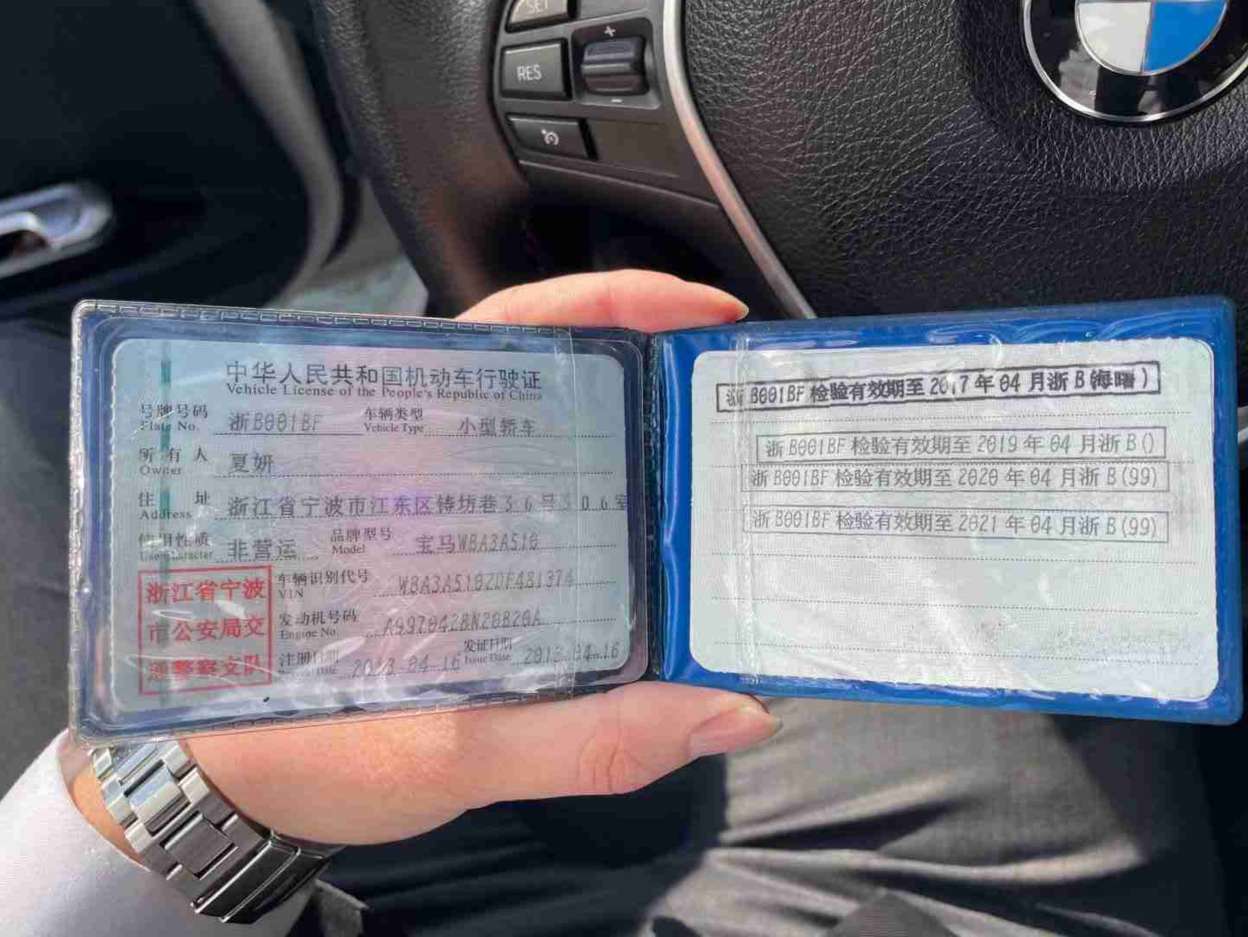 SET
RES
+
−
中华人民共和国机动车行驶证
Vehicle License of the People's Republic of China
号牌号码 浙B001BF 车辆类型 小型轿车
Plate No. Vehicle Type
所有人 夏妍
Owner
住址 浙江省宁波市江东区铸坊巷36号306室
Address
使用性质 非营运 品牌型号 宝马WBA3A510
Use Character Model
浙江省宁波
市公安局交
通警察支队
车辆识别代号 WBA3A5102DF481374
VIN
发动机号码 A997042BN20B20A
Engine No.
注册日期 2013-04-16 发证日期 2013-04-16
Register Date Issue Date
浙B001BF 检验有效期至 2017 年 04 月浙 B (海曙)
浙B001BF 检验有效期至 2019 年 04 月浙 B ()
浙B001BF 检验有效期至 2020 年 04 月浙 B (99)
浙B001BF 检验有效期至 2021 年 04 月浙 B (99)